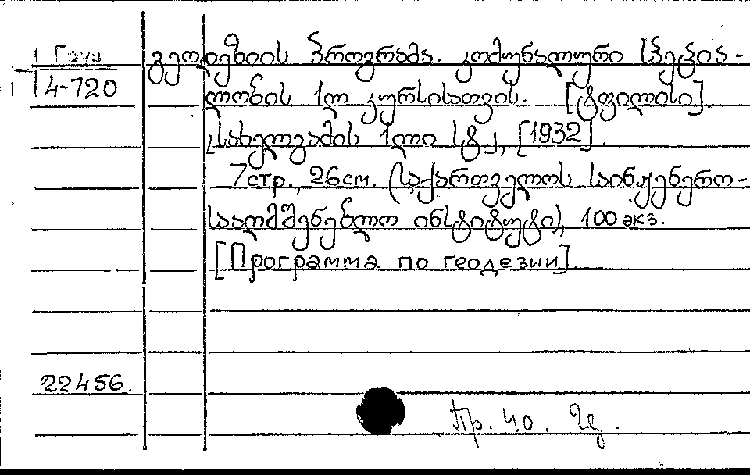 1 Груз
14-720
გეოდეზიის პროგრამა. კომუნალური სპეცია-
ლობის 1ლ კურსისათვის. [ტფილისი]
[სახელგამის 1ლი სტ], [1932].
7стр., 26см. (საქართველოს საინჟენერო-
საადმშენებლო ინსტიტუტი), 100 экз.
[Программа по геодезии]
22456.
Пр. 40.